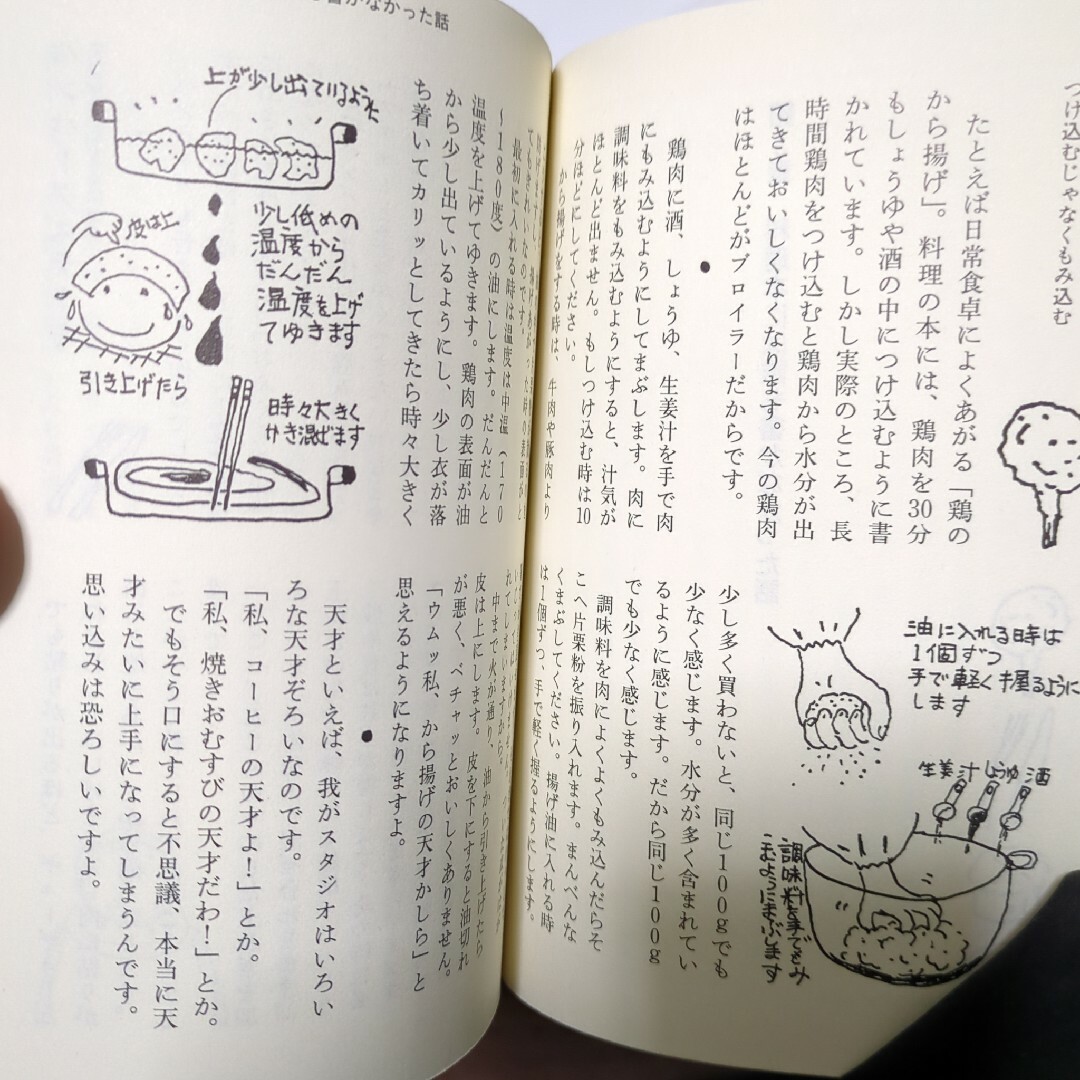 つけ込むじゃなくもみ込む
たとえば日常食卓によくあがる「鶏の
から揚げ」。料理の本には、鶏肉を30分
もしょうゆや酒の中につけ込むように書
かれています。しかし実際のところ、長
時間鶏肉をつけ込むと鶏肉から水分が出
てきておいしくなくなります。今の鶏肉
はほとんどがブロイラーだからです。
●
鶏肉に酒、しょうゆ、生姜汁を手で肉
にもみ込むようにしてまぶします。肉に
調味料をもみ込むようにすると、汁気が
ほとんど出ません。もしつけ込む時は10
分ほどにしてください。
から揚げをする時は、牛肉や豚肉より
少し多く買わないと、同じ100gでも
少なく感じます。水分が多く含まれてい
るように感じます。だから同じ100g
でも少なく感じます。
調味料を肉によくよくもみ込んだらそ
こへ片栗粉を振り入れます。まんべんな
くまぶしてください。揚げ油に入れる時
は1個ずつ、手で軽く握るようにします。
油に入れる時は
1個ずつ
手で軽く握るように
します
生姜汁 しょうゆ 酒
調味料を手でもみ
こむようにまぶします
なかった話
上が少し出ているように
少し低めの
温度から
だんだん
温度を上げ
てゆきます
皮は上
引き上げたら
時々大きく
かき混ぜます
てもきれいなのです。
最初に入れる時は温度は中温(170
～180度)の油にします。だんだんと
温度を上げてゆきます。鶏肉の表面が油
から少し出ているようにし、少し衣が落
ち着いてカリッとしてきたら時々大きく
れてしまいますから。
中まで火が通り、油から引き上げたら
皮は上にします。皮を下にすると油切れ
が悪く、ベチャッとおいしくありません。
「ウムッ私、から揚げの天才かしら」と
思えるようになりますよ。
●
天才といえば、我がスタジオはいろい
ろな天才ぞろいなのです。
「私、コーヒーの天才よ!」とか。
「私、焼きおむすびの天才だわ!」とか。
でもそう口にすると不思議、本当に天
才みたいに上手になってしまうんです。
思い込みは恐ろしいですよ。